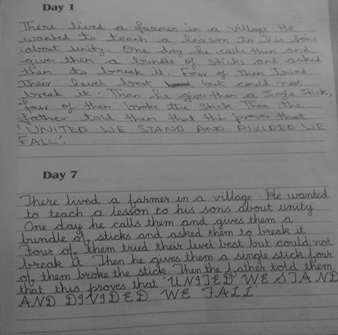 Day 1
There lived a farmer in a village. He
wanted to teach a leason to his sons
about unity. One day he calls them and
given them a bundle of sticks and asked
them to break it. Four of them tried
their level best but could not
break it. Then he gives them a single stick,
four of them broke the stick Then the
father told them that this proves that
'UNITED WE STAND AND DIVIDED WE
FALL'
Day 7
There lived a farmer in a village. He wanted
to teach a lesson to his sons about unity
One day he calls them and gives them a
bundle of sticks and asked them to break it
four of them tried their level best but could not
break it. Then he gives them a single stick four
of them broke the stick. Then the father told them
that this proves that 'UNITED WE STAND
AND DIVIDED WE FALL'